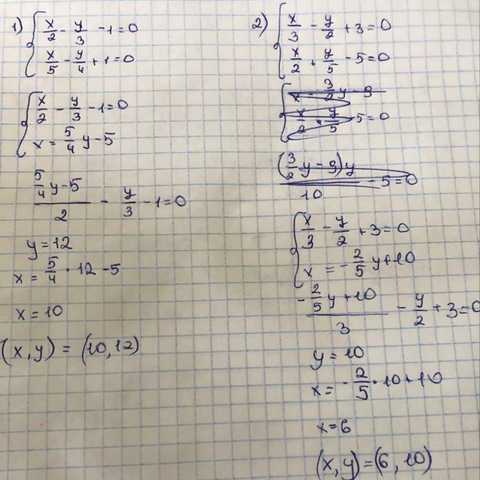 1) { x/2 - y/3 - 1 = 0
x/5 - y/4 + 1 = 0
{ x/2 - y/3 - 1 = 0
x = 5/4 y - 5
(5/4 y - 5)/2 - y/3 - 1 = 0
y = 12
x = 5/4 · 12 - 5
x = 10
(x, y) = (10, 12)
2) { x/3 - y/2 + 3 = 0
x/2 + y/5 - 5 = 0
{ x = 3/2 y - 9
x/2 · y/5 - 5 = 0
(3/2 y - 9) y / 10 - 5 = 0
{ x/3 - y/2 + 3 = 0
x = - 2/5 y + 10
(- 2/5 y + 10)/3 - y/2 + 3 = 0
y = 10
x = - 2/5 · 10 + 10
x = 6
(x, y) = (6, 10)